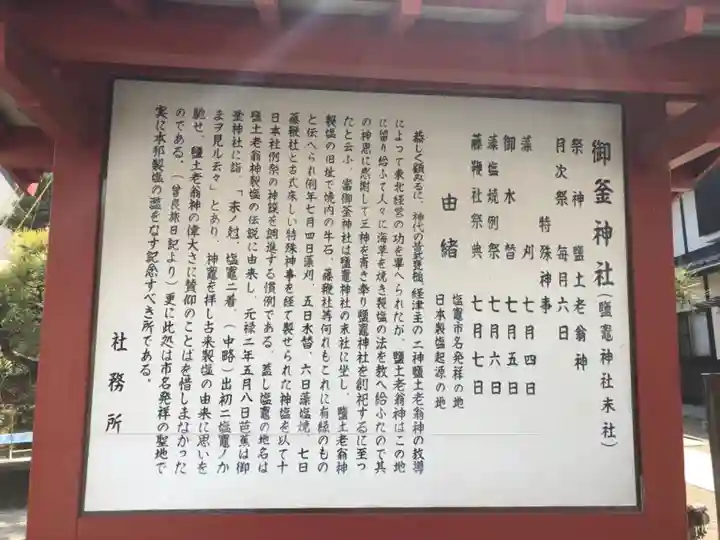 御釜神社（鹽竈神社末社）
祭神　鹽土老翁神
月次祭　毎月六日
特殊神事
藻刈　七月四日
御水替　七月五日
藻塩焼例祭　七月六日
藤鞭社祭典　七月七日
塩竈市名発祥の地
日本製塩起源の地
由緒
恭しく顧みるに、神代の昔武甕槌 経津主の二神鹽土老翁神の教導
によって東北経営の功を畢へられたが、鹽土老翁神はこの地
に留り給ふて人々に海草を焼き製塩の法を教へ給ふたので其
の神恩に感謝して三神を斎き奉り鹽竈神社を創祀するに至っ
たと云ふ、當御釜神社は鹽竈神社の末社に坐し、鹽土老翁神
製塩の旧址で境内の牛石、藤鞭社等何れもこれに有縁のもの
と伝へられ例年七月四日藻刈、五日水替、六日藻塩焼、七日
藤鞭社と古式床しい特殊神事を経て製せられた神塩を以て十
日本社例祭の神饌を調進する慣例である、蓋し塩竈の地名は
鹽土老翁神製塩の伝説に由来し、元禄二年五月八日芭蕉は御
釜神社に詣、「末ノ尅、塩竈ニ着、（中略）出初ニ塩竈ノか
まヲ見ル云々」とあり、神竈を拝し古来製塩の由来に思いを
馳せ、鹽土老翁神の偉大さに賛仰のことばを惜しまなかった
のである、（曽良旅日記より）更に此処は市名発祥の聖地で
実に本邦製塩の濫をなす記念すべき所である。
社務所